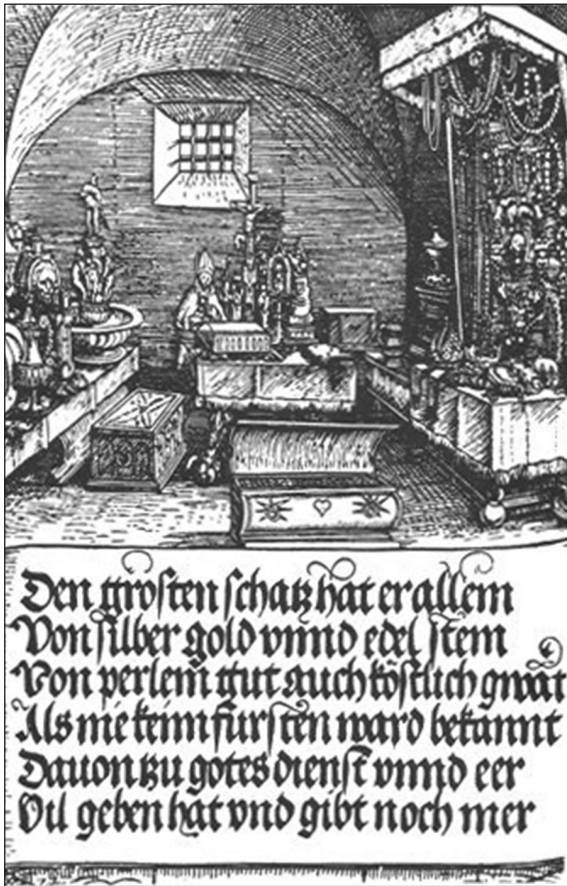 Den grosten schatz hat er allein
Von silber gold vnnd edel stein
Von perlein gut auch köstlich gwāt
Als nie keinn fursten ward bekannt
Dauon tzu gotes dienst vnnd eer
Vil geben hat vnd gibt noch mer